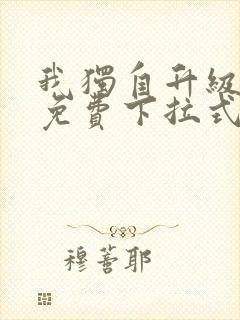 我獨自升級
免費下拉式
穆蒼耶